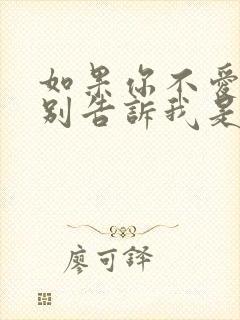 如果你不愛
別告訴我是
廖可鐸